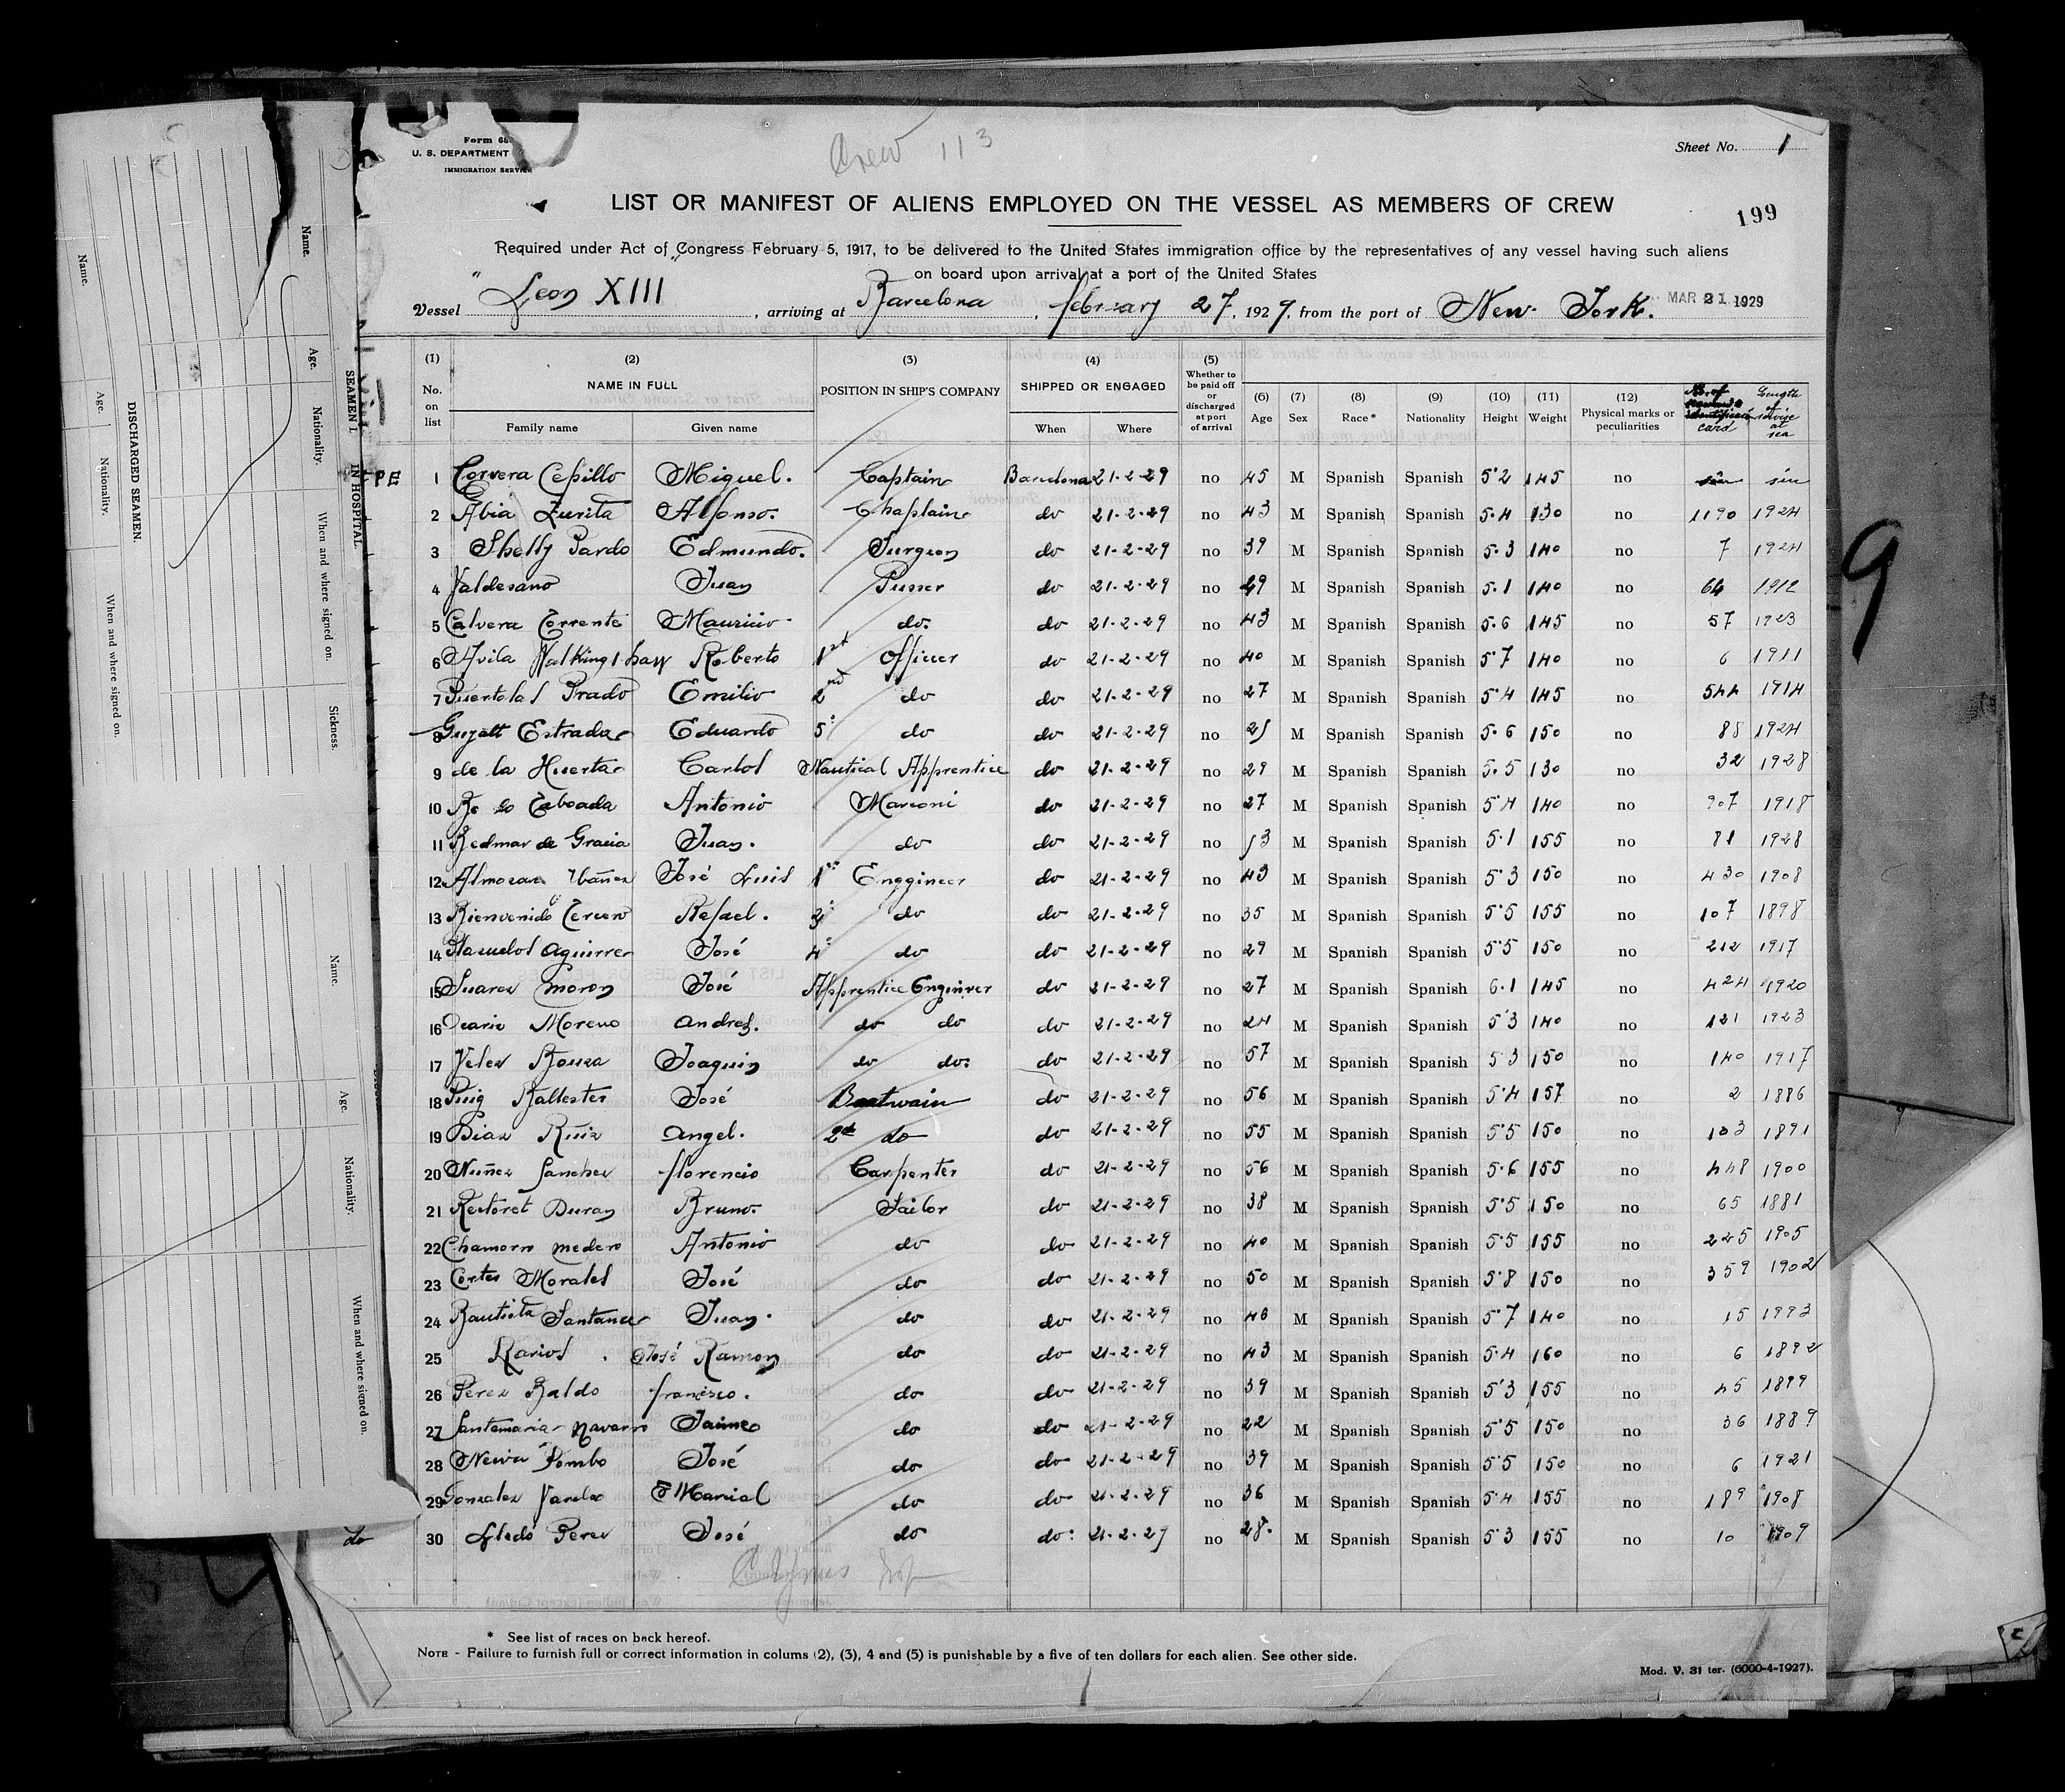 Crew 113
Form 68
U. S. DEPARTMENT
IMMIGRATION SERVICE
Sheet No. 1
LIST OR MANIFEST OF ALIENS EMPLOYED ON THE VESSEL AS MEMBERS OF CREW
199
Required under Act of Congress February 5, 1917, to be delivered to the United States immigration office by the representatives of any vessel having such aliens
on board upon arrival at a port of the United States
Vessel "Leon XIII", arriving at Barcelona, february 27, 1929, from the port of New York. MAR 21 1929
(1) (2) (3) (4) (5)
No. on list NAME IN FULL POSITION IN SHIP'S COMPANY SHIPPED OR ENGAGED Whether to be paid off or discharged at port of arrival (6) Age (7) Sex (8) Race * (9) Nationality (10) Height (11) Weight (12) Physical marks or peculiarities No. of identification card Length at sea
Family name Given name When Where
PE 1 Corvera Cepillo Miguel. Captain Barcelona 21-2-29 no 45 M Spanish Spanish 5'2 145 no sin sin
2 Abia Zurita Alfonso. Chaplain do 21-2-29 no 43 M Spanish Spanish 5.4 130 no 1190 1924
3 Shelly Pardo Edmundo. Surgeon do 21-2-29 no 39 M Spanish Spanish 5.3 140 no 7 1924
4 Valdesano Juan Pusser do 21-2-29 no 49 M Spanish Spanish 5.1 140 no 64 1912
5 Calvera Corrente Mauricio do. do 21-2-29 no 43 M Spanish Spanish 5.6 145 no 57 1923
6 Avila Walkingshaw Roberto 1st officer do 21-2-29 no 40 M Spanish Spanish 5'7 140 no 6 1911
7 Puertolas Prado Emilio 2nd do do 21-2-29 no 27 M Spanish Spanish 5'4 145 no 544 1914
8 Guyatt Estrada Eduardo 5º do do 21-2-29 no 25 M Spanish Spanish 5.6 150 no 88 1924
9 de la Huerta Carlos Nautical Apprentice do 21-2-29 no 29 M Spanish Spanish 5.5 130 no 32 1928
10 Taboada Antonio Marconi do 21-2-29 no 27 M Spanish Spanish 5'4 140 no 907 1918
11 Bedmar de Gracia Juan. do do 21-2-29 no 53 M Spanish Spanish 5.1 155 no 81 1928
12 Almozara Ibáñez José Luis 1er Enggineer do 21-2-29 no 43 M Spanish Spanish 5'3 150 no 430 1908
13 Bienvenido Tercero Rafael. 3º do do 21-2-29 no 35 M Spanish Spanish 5'5 155 no 107 1898
14 aguirre José 4º do do 21-2-29 no 29 M Spanish Spanish 5'5 150 no 212 1917
15 Suarez moron José Apprentice Enginver do 21-2-29 no 27 M Spanish Spanish 6.1 145 no 424 1920
16 Moreno andres. do do do 21-2-29 no 24 M Spanish Spanish 5'3 140 no 121 1923
17 Velez Bouza Joaquin do do. do 21-2-29 no 57 M Spanish Spanish 5'3 150 no 140 1917
18 Puig Ballester José Boatswain do 21-2-29 no 56 M Spanish Spanish 5'4 157 no 2 1886
19 Diaz Ruiz angel. 2nd do do 21-2-29 no 55 M Spanish Spanish 5'5 150 no 103 1891
20 Nuñez Sanchez florencio Carpenter do 21-2-29 no 56 M Spanish Spanish 5.6 155 no 448 1900
21 Rectoret Duran Bruno. Sailor do 21-2-29 no 38 M Spanish Spanish 5'5 150 no 65 1881
22 Chamorro medero Antonio do do 21-2-29 no 40 M Spanish Spanish 5'5 155 no 225 1905
23 Cortes Morales José do do 21-2-29 no 50 M Spanish Spanish 5'8 150 no 359 1902
24 Bautista Santaner Juan. do do 21-2-29 no 40 M Spanish Spanish 5'7 140 no 15 1993
25 Larios José Ramon do do 21-2-29 no 43 M Spanish Spanish 5.4 160 no 6 1892
26 Perez Baldo francisco. do do 21-2-29 no 39 M Spanish Spanish 5'3 155 no 45 1899
27 Santamaria navarro Jaime do do 21-2-29 no 22 M Spanish Spanish 5'5 150 no 36 1889
28 Neiva Pombo José do do 21-2-29 no 39 M Spanish Spanish 5'5 150 no 6 1921
29 Gonzalez Varela Marcial do do 21-2-29 no 36 M Spanish Spanish 5'4 155 no 189 1908
do 30 Lledó Perez José do do. 21-2-29 no 28. M Spanish Spanish 5'3 155 no 10 1909
* See list of races on back hereof.
NOTE - Failure to furnish full or correct information in colums (2), (3), 4 and (5) is punishable by a five of ten dollars for each alien. See other side.
Mod. V. 31 ter. (6000-4-1927).
9
DISCHARGED SEAMEN.
Name. Age. Nationality. When and where signed on.
SEAMEN IN HOSPITAL
Name. Age. Nationality. When and where signed on. Sickness.
Name. Age. Nationality. When and where signed on.